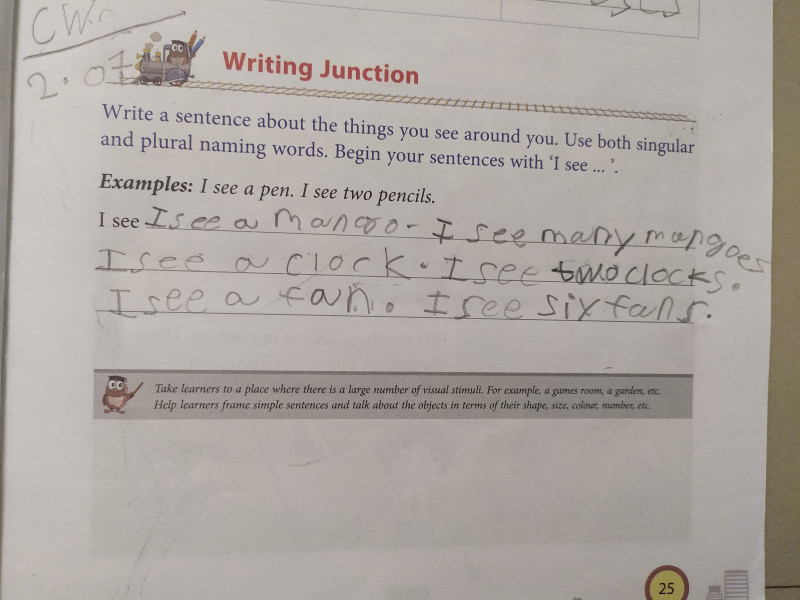 C.W.
2.07
Writing Junction
Write a sentence about the things you see around you. Use both singular
and plural naming words. Begin your sentences with ‘I see ... ’.
Examples: I see a pen. I see two pencils.
I see I see a mango. I see many mangoes
I see a clock. I see two clocks.
I see a fan. I see six fans.
Take learners to a place where there is a large number of visual stimuli. For example, a games room, a garden, etc.
Help learners frame simple sentences and talk about the objects in terms of their shape, size, colour, number, etc.
25